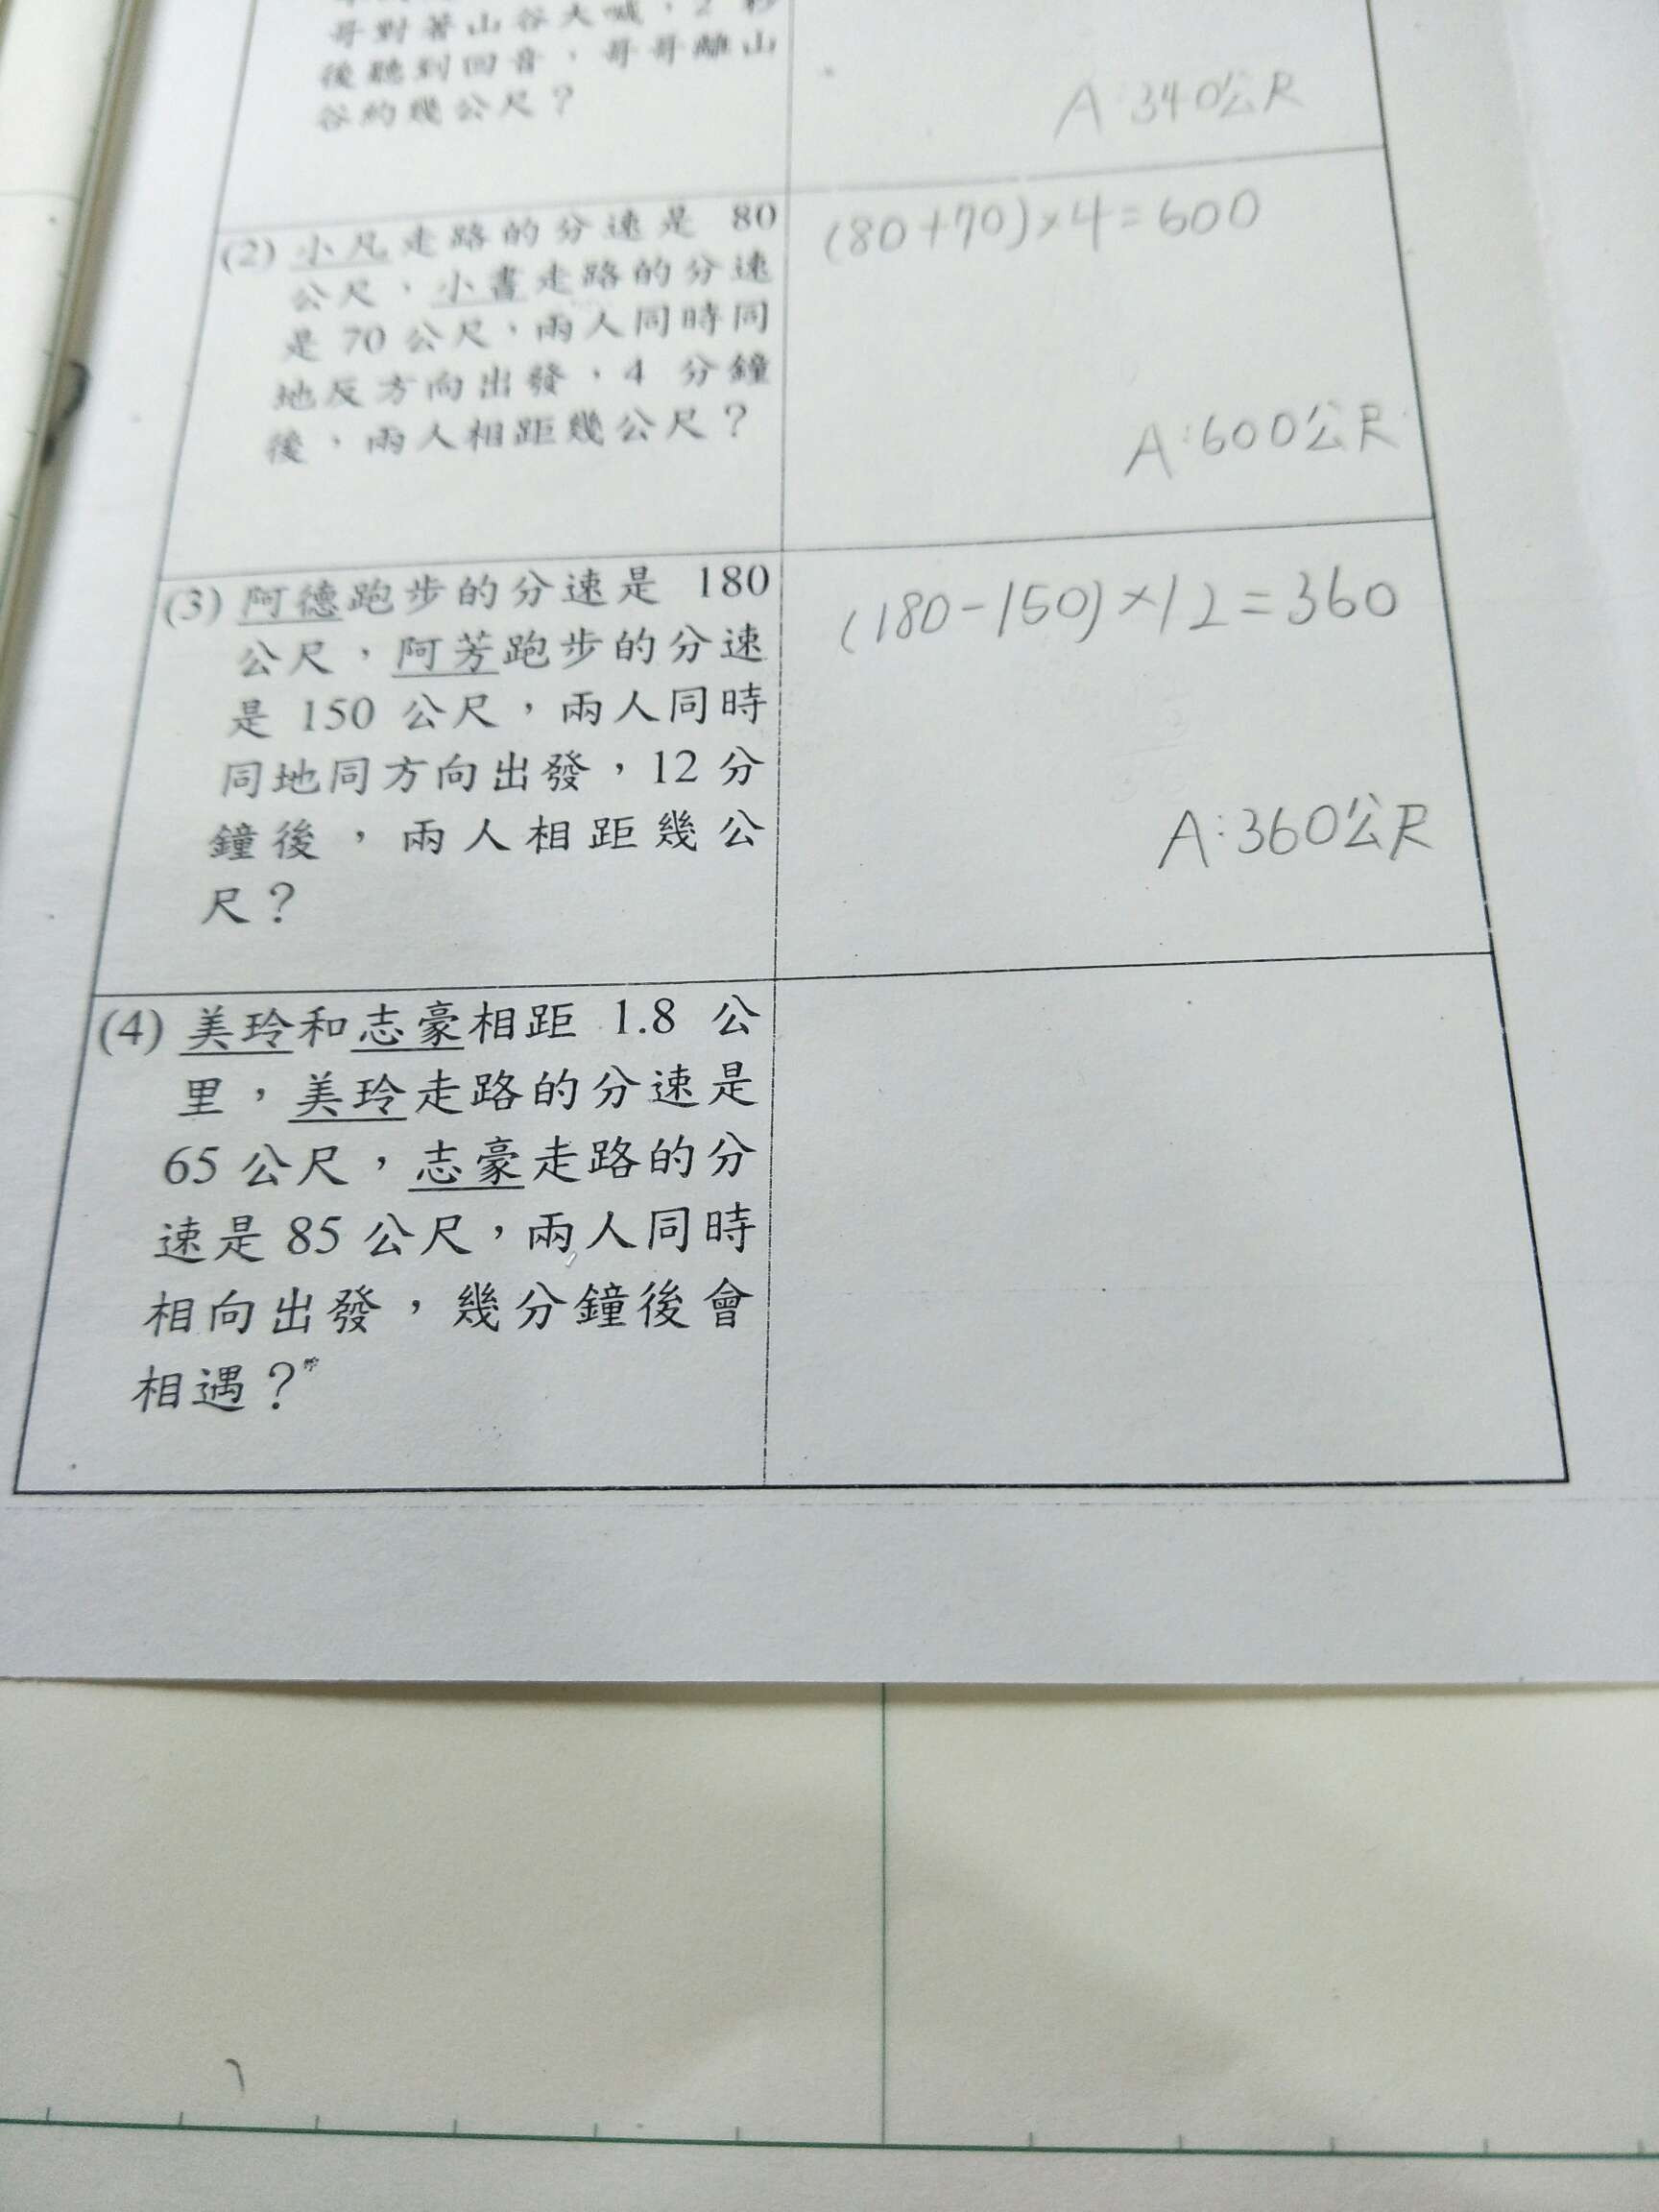 哥對著山谷大喊，2 秒
後聽到回音，哥哥離山
谷約幾公尺？
A:340公尺
(2) 小凡走路的分速是 80
公尺，小書走路的分速
是 70 公尺，兩人同時同
地反方向出發，4 分鐘
後，兩人相距幾公尺？
(80+70)×4=600
A:600公尺
(3) 阿德跑步的分速是 180
公尺，阿芳跑步的分速
是 150 公尺，兩人同時
同地同方向出發，12 分
鐘後，兩人相距幾公
尺？
(180-150)×12=360
A:360公尺
(4) 美玲和志豪相距 1.8 公
里，美玲走路的分速是
65 公尺，志豪走路的分
速是 85 公尺，兩人同時
相向出發，幾分鐘後會
相遇？